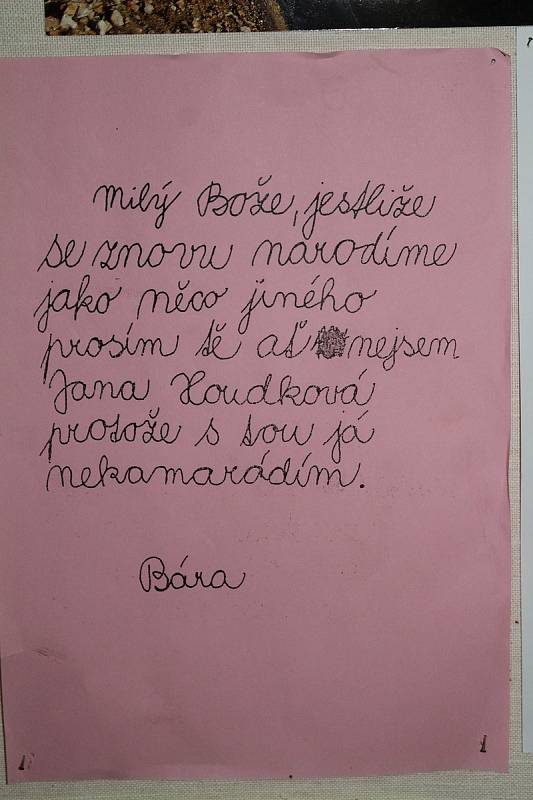 Milý Bože, jestliže
se znovu narodíme
jako něco jiného
prosím tě ať nejsem
Jana Houdková
protože s tou já
nekamarádím.
Bára